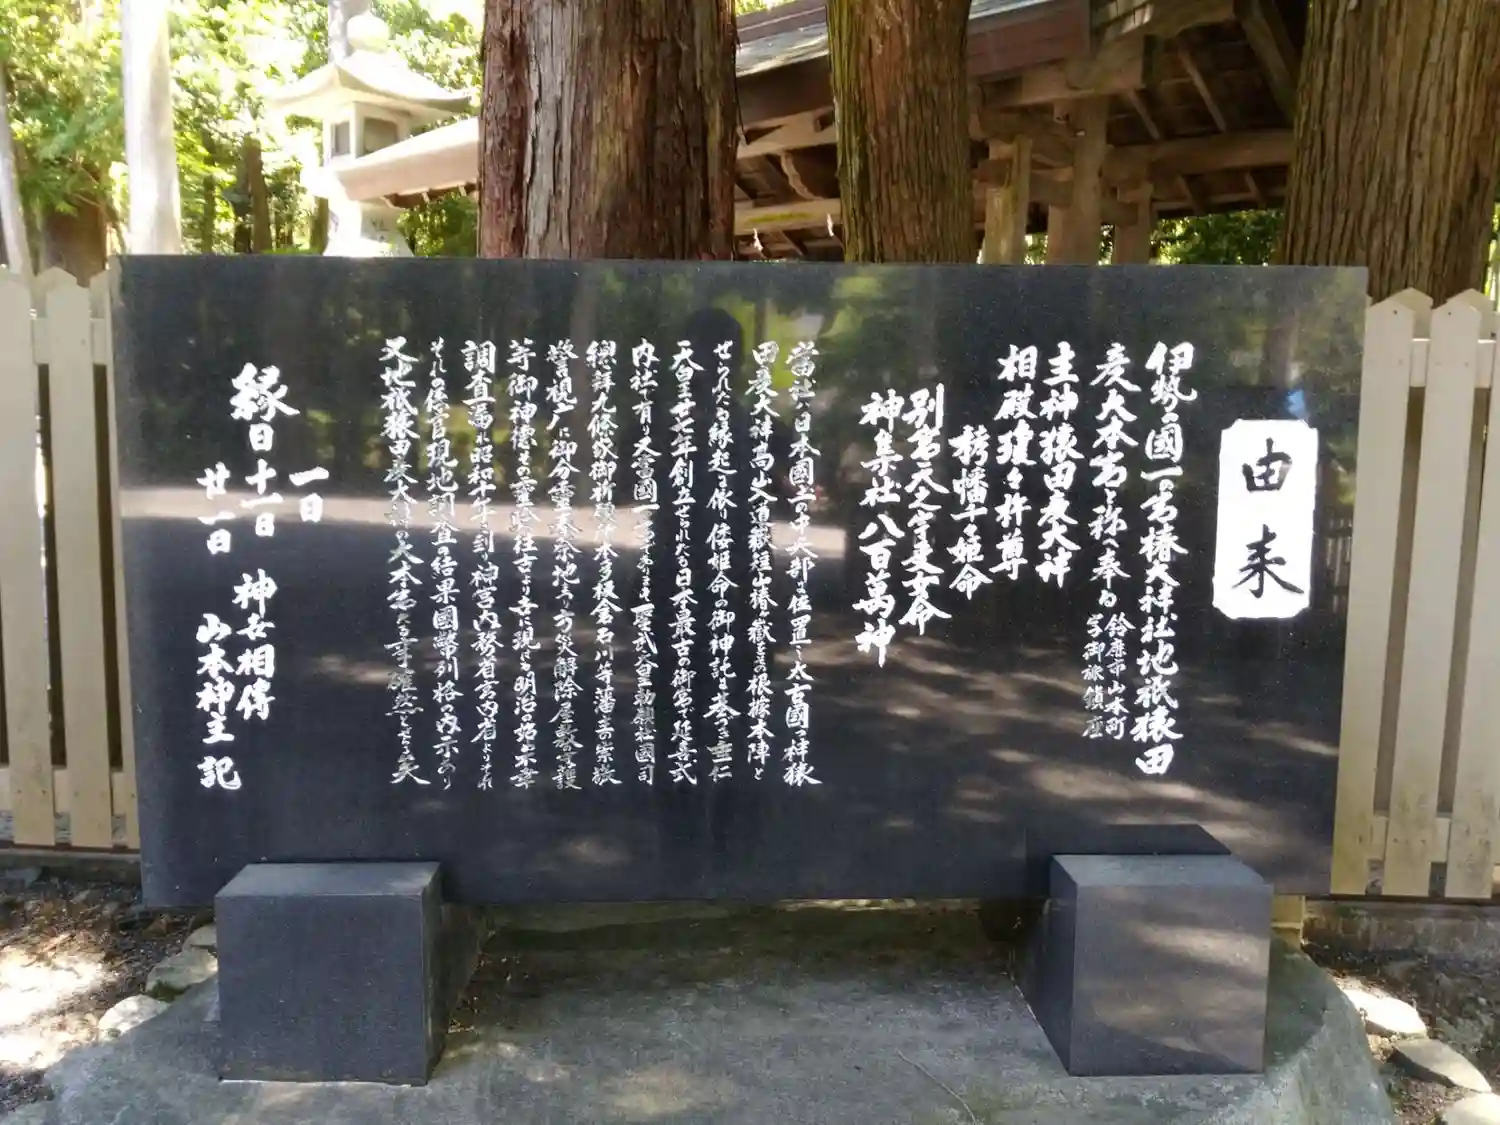 由来
伊勢の國一の宮椿大神社地祇猿田
彦大本宮と称へ奉る 鈴鹿市山本町 字御旅鎮座
主神猿田彦大神
相殿瓊々杵尊
栲幡千々姫命
別宮天之宇受女命
神集社八百萬神
當社は日本國土の中央部に位置し太古國つ神猿
田彦大神高山入道嶽短山椿ヶ嶽をその根據本陣と
せられたる縁起に依り倭姫命の御神託を奉づき垂仁
天皇廿七年創立せられたる日本最古の御宮で延喜式
内社で有り又當國一の宮であります聖武天皇勅願社國司
警視庁に御分霊奉祭地より方災解除屋敷守護
等御神徳その霊験往古より世に現はる明治の始
調査高れ昭和十年に到り神宮内務省宮内省より
それの係官現地調査の結果國幣列格の内示あり
又地祇猿田彦大神の大本宮たる事確然とせらる矣
縁日 一日 十一日 廿一日
神世相傳
山本神主 記